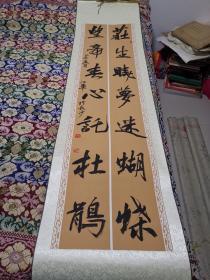 莊生曉夢迷蝴蝶
望帝春心託杜鵑